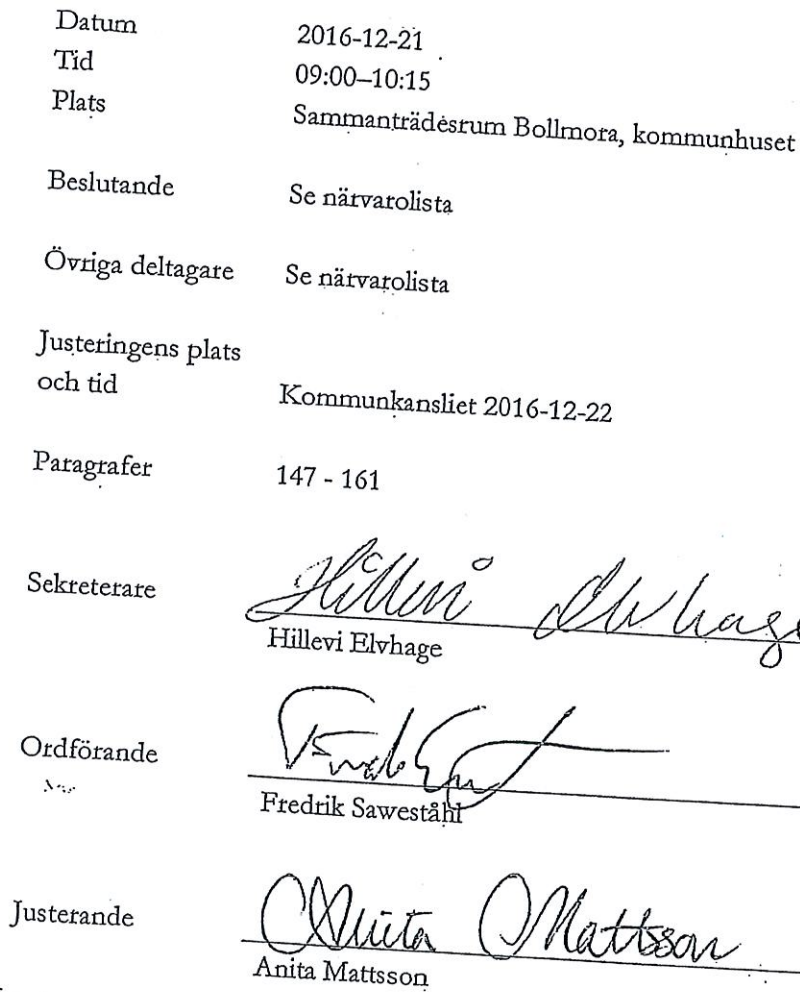 Datum 2016-12-21
Tid 09:00–10:15
Plats Sammanträdesrum Bollmora, kommunhuset
Beslutande Se närvarolista
Övriga deltagare Se närvarolista
Justeringens plats
och tid Kommunkansliet 2016-12-22
Paragrafer 147 - 161
Sekreterare Hillevi Elvhage
Hillevi Elvhage
Ordförande
Fredrik Saweståhl
Justerande Anita Mattsson
Anita Mattsson